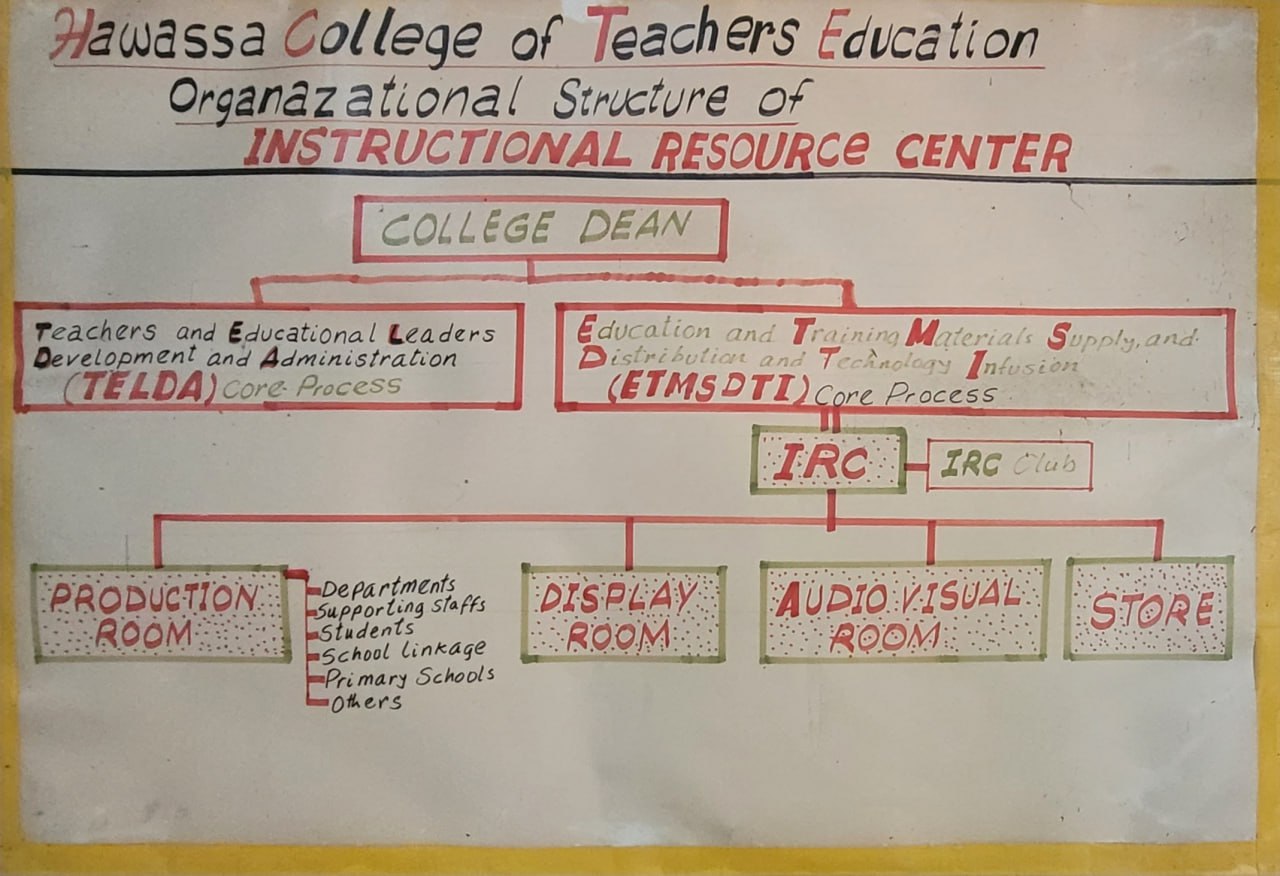 Hawassa College of Teachers Education
Organazational Structure of
INSTRUCTIONAL RESOURCE CENTER
COLLEGE DEAN
Teachers and Educational Leaders
Development and Administration
(TELDA) Core Process
Education and Training Materials Supply, and
Distribution and Technology Infusion
(ETMSDTI) Core Process
IRC
IRC Club
PRODUCTION
ROOM
Departments
Supporting staffs
Students
School linkage
Primary Schools
Others
DISPLAY
ROOM
AUDIO VISUAL
ROOM
STORE